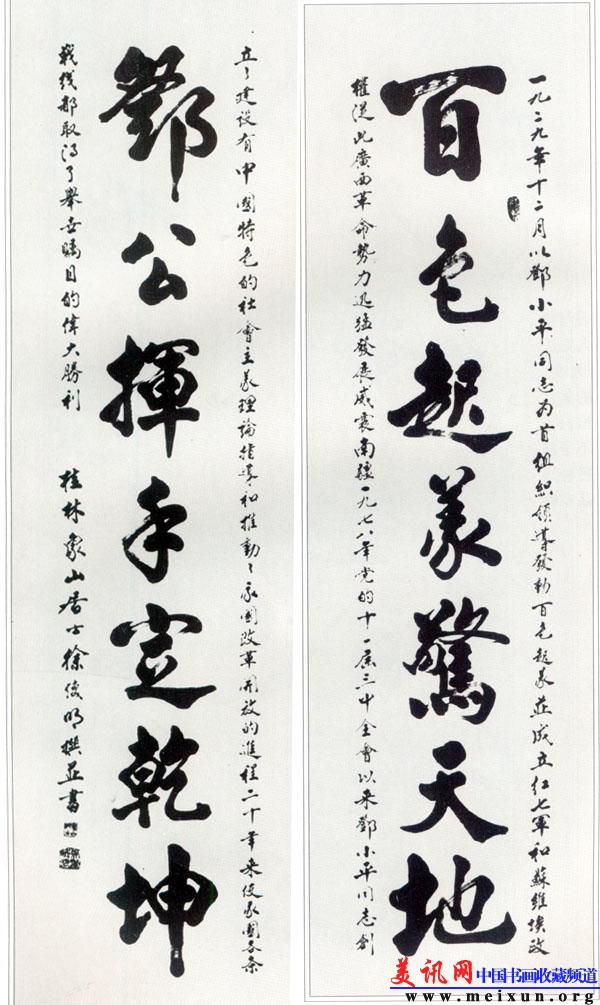 百色起義驚天地
一九二九年十二月以鄧小平同志为首组织领導發動百色起義並成立红七軍和蘇維埃政
權從此廣西革命勢力迅猛發展威震南疆一九七八年党的十一屆三中全會以来鄧小平同志創
鄧公揮手定乾坤
立了建设有中國特色的社會主義理論指導和推動了我國改革開放的進程二十年来使我國各条
戰线都取得了舉世矚目的偉大勝利
桂林象山居士徐俊明撰並書
美讯网中国书画收藏频道
www.meixun.org